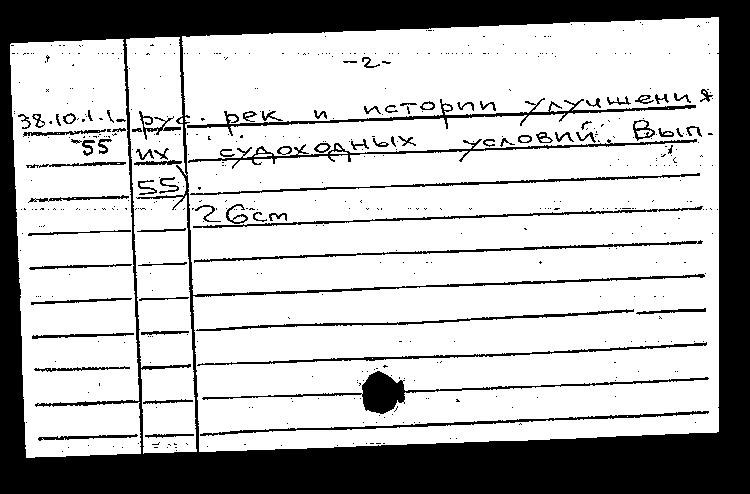 -2-
38.10.1.1- рус. рек и истории улучшения
55 их судоходных условий. Вып.
55).
26cm